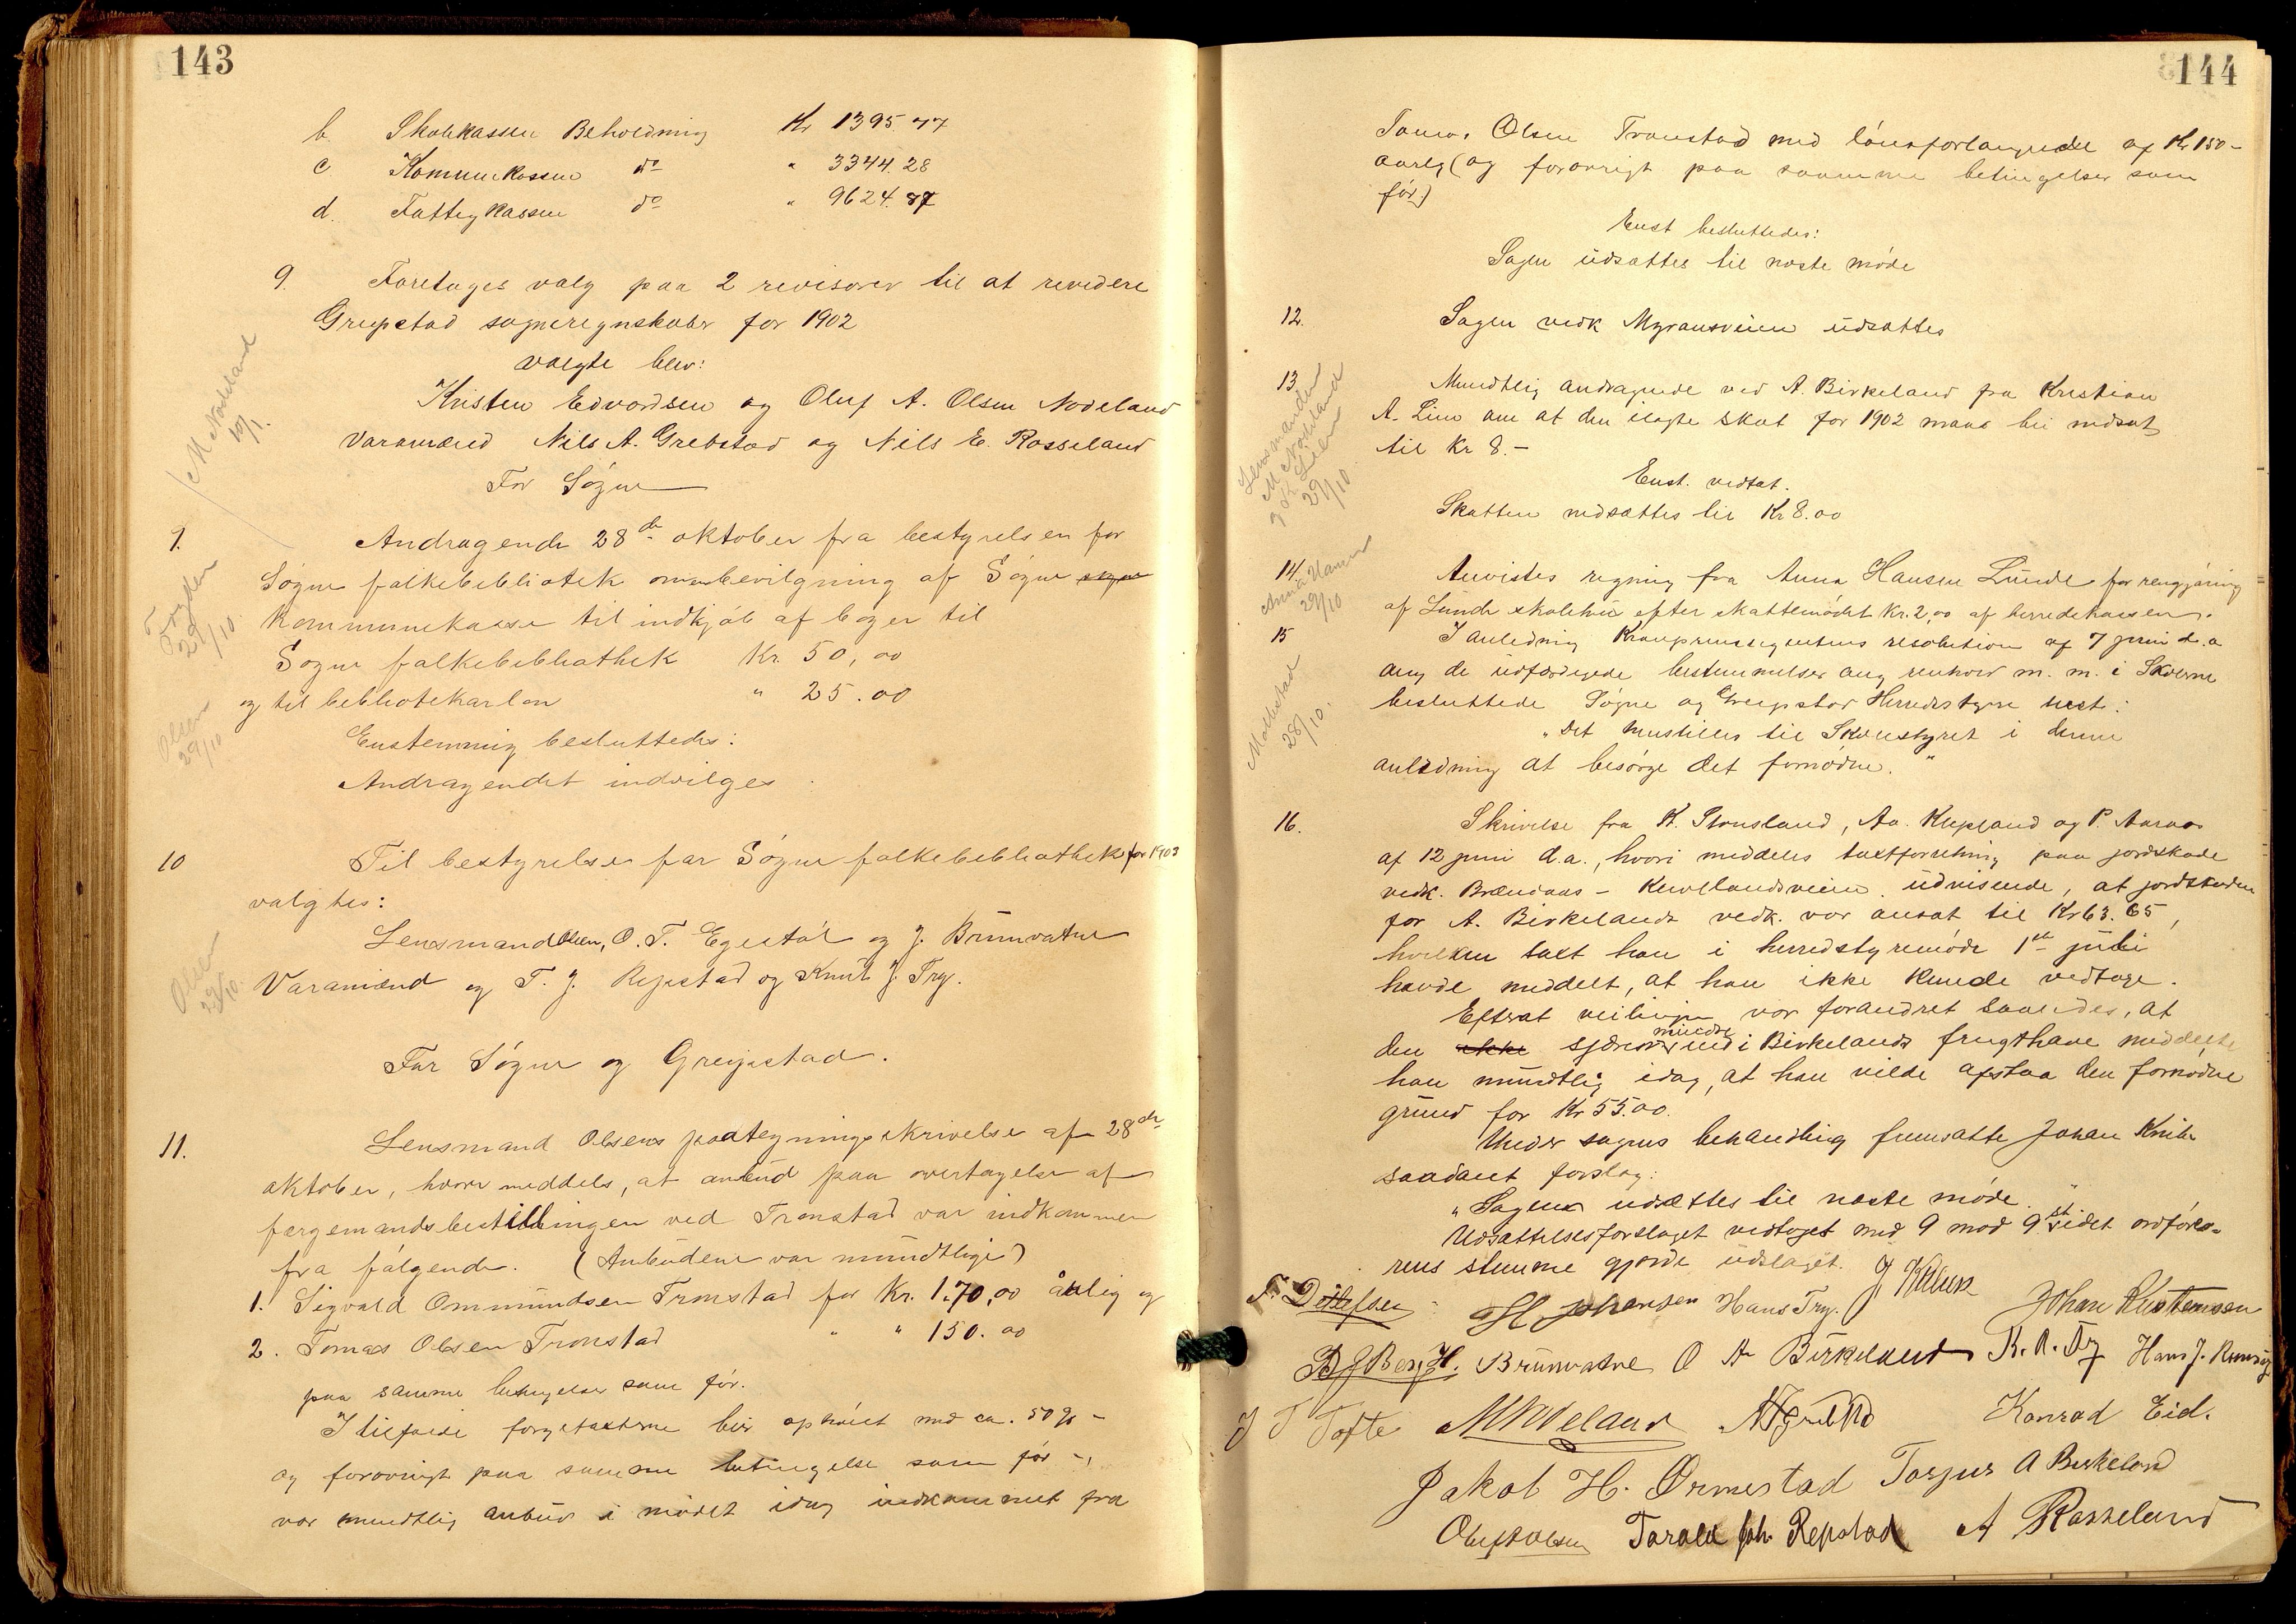 143
b. Skolekassen Beholdning Kr 1395.77
c Kommunekassen do " 3344.28
d. Fattigkassen do " 9624.87
9. Foretages valg paa 2 revisorer til at revidere
Greipstad sogneregnskaber for 1902
valgte blev:
Kristen Edvardsen og Oluf A. Olsen Nodeland
Varamænd Nils A. Grebstad og Nils E. Rosseland
M Nodeland
10/1.
For Søgne
9. Andragende 28de oktober fra bestyrelsen for
Søgne folkebibliotek om bevilgning af Søgne
kommunekasse til indkjøb af bøger til
Søgne folkebibliothek Kr. 50,00
og til bibliotekarløn " 25.00
Fogden
29/10.
Olsen
29/10
Enstemmig besluttedes:
Andragendet indvilges.
10 Til bestyrelse for Søgne folkebibliothek for 1903
valgtes:
Lensmand Olsen, O. T. Egestøl og J. Brunvatne
Varamænd og T. J. Repstad og Knut J. Try.
Olsen
29/10.
For Søgne og Greipstad.
11. Lensmand Olsens paategningsskrivelse af 28de
oktober, hvori meddels, at anbud paa overtagelse af
færgemandsbestillingen ved Tronstad var indkommen
fra følgende. (Anbudene var mundtlige)
1. Sigvald Ommundsen Tronstad for Kr. 170,00 årlig og
2. Tomas Olsen Tronstad " " 150.00
paa samme betingelser som før.
I tilfælde færgetaxterne blir ophøiet med ca. 50 %
og forøvrigt paa samme betingelse som før -,
var mundtlig anbud i mødet idag indkommet fra
144
Tomas Olsen Tronstad med lønsforlangende af Kr 150-
aarlig (og forøvrigt paa samme betingelser som
før)
Enst besluttedes:
Sagen udsættes til næste møde
12. Sagen vedk Myransveien udsattes
13. Mundtlig andragende ved A. Birkeland fra Kristian
A. Lien om at den ilagte skat for 1902 maas bli nedsat
til Kr 8.-
Lensmanden
M Nodeland
29/10.
Enst. vedtat.
Skatten nedsættes til Kr 8.00
14. Anvistes regning fra Anna Hansen Lunde for rengjøring
af Lunde skolehus efter skattemødet Kr. 2,00 af herredskassen.
Anna Hansen
29/10
15 I anledning Kronprinsregentens resolution af 7 juni d.a
ang de udfærdigede bestemmelser ang renhold m. m. i Skolerne
besluttede Søgne og Greipstad Herredsstyre enst:
"Det henstilles til Skolestyret i denne
anledning at besørge det fornødne."
28/10.
16. Skrivelse fra K. Stensland, Aa. Klepland og P. Aaraas
af 12 juni d.a., hvori meddeles taxtforretning paa jordskade
vedk. Brændaas - veien udvisende, at jordskaden
for A. Birkelands vedk. var ansat til Kr 63.65,
hvilken taxt han i herredstyremøde 1ste juli
havde meddelt, at han ikke kunde vedtage.
Efterat veilinjen var forandret saaledes, at
den ikke skjærer mindre ind i Birkelands frugthave meddelte
han mundtlig idag, at han vilde afstaa den fornødne
grund for Kr 55.00.
Under sagens behandling fremsatte Johan
saadant forslag:
"Sagen udsættes til næste møde."
Udsættelsesforslaget vedtoges med 9 mod 9 st. idet ordføre-
rens stemme gjorde udslaget.
N. Ditlefsen H Johansen Hans Try. Johan Kristensen
B J Berg H. Brunvatne O A Birkeland K. A. Try
J T Tofte M Nodeland Konrad Eid.
Jakob H. Ormestad Torjus A Birkeland
Oluf A Olsen Tarald Joh. Repstad A Rosseland